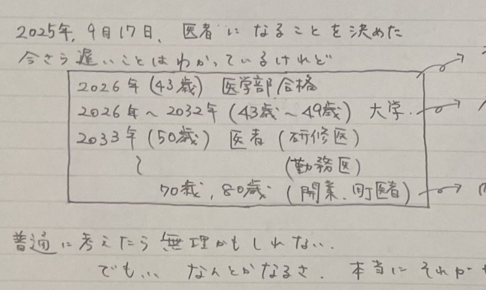 2025年, 9月17日, 医者になることを決めた
今さら遅いことはわかっているけれど
2026年 (43歳) 医学部合格
2026年 ~ 2032年 (43歳~49歳) 大学
2033年 (50歳) 医者 (研修医)
~ (勤務医)
70歳, 80歳 (開業, 町医者)
普通に考えたら無理かもしれない..
でも... なんとかなるさ. 本当にそれが